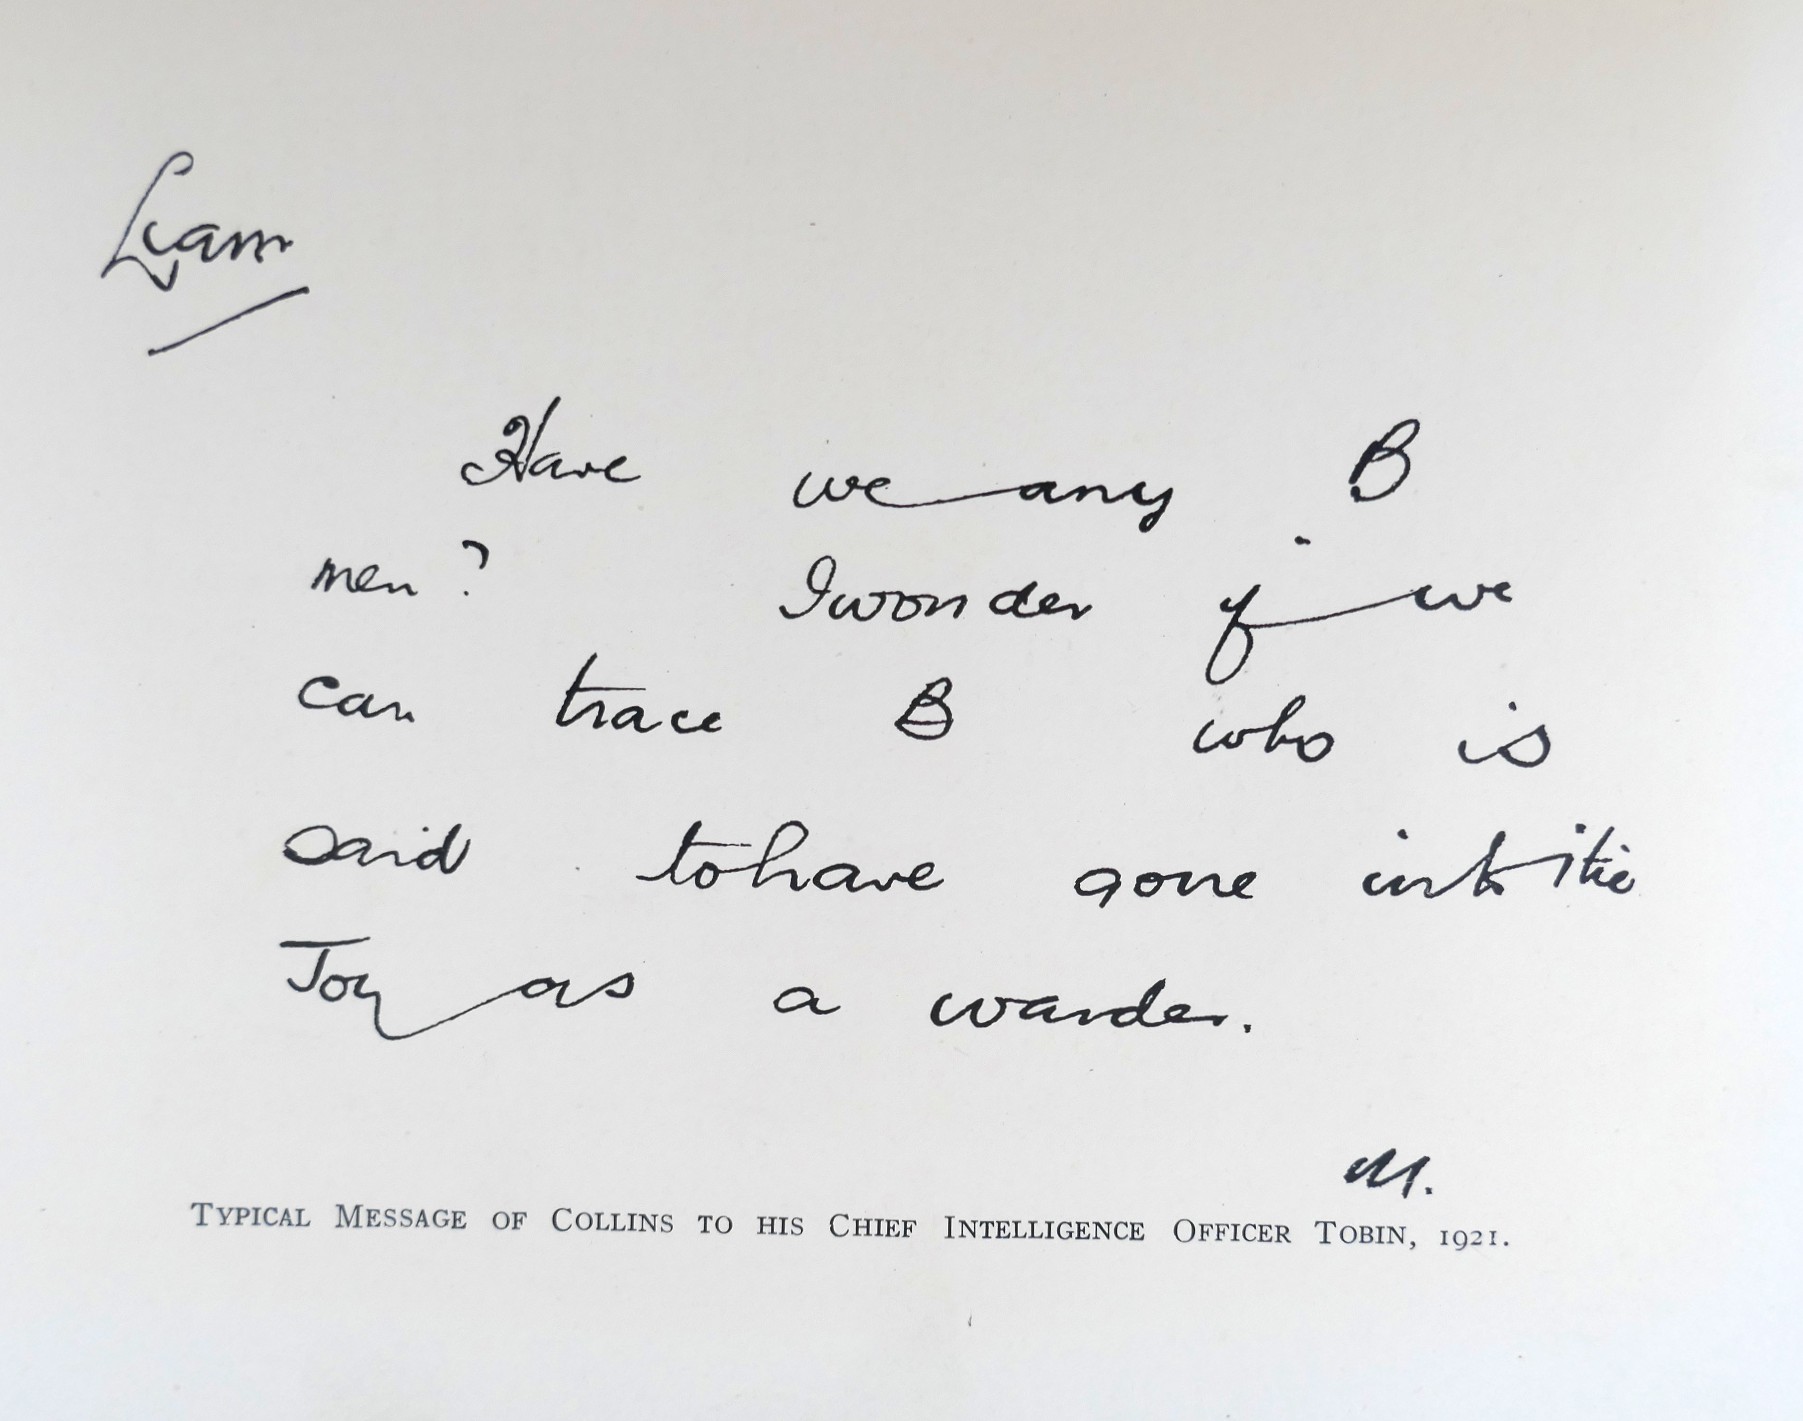 Liam
Have we any B
men? I wonder if we
can trace B who is
said to have gone into the
Joy as a warder.
M.
TYPICAL MESSAGE OF COLLINS TO HIS CHIEF INTELLIGENCE OFFICER TOBIN, 1921.